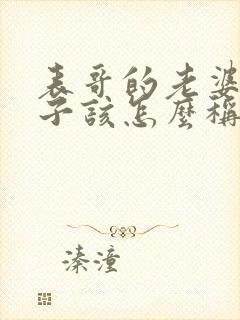 表哥的老婆
子該怎麼稱
溱潼